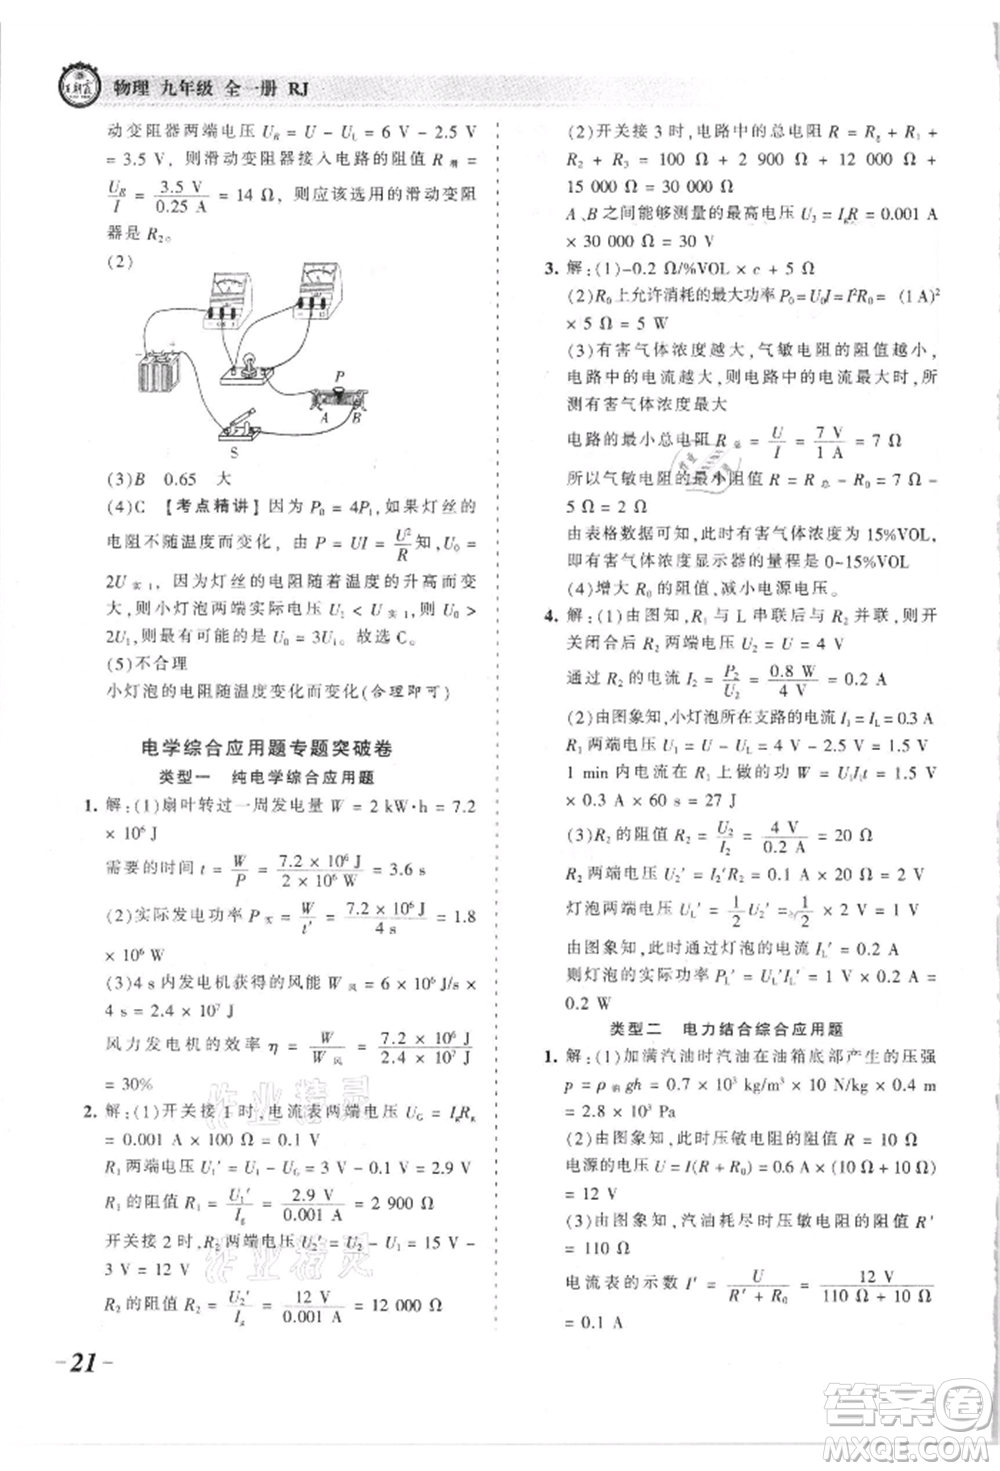 王朝霞
物理 九年级 全一册 RJ
动变阻器两端电压 U_R = U − U_L = 6 V − 2.5 V
= 3.5 V，则滑动变阻器接入电路的阻值 R_滑 =
U_R/I = 3.5 V/0.25 A = 14 Ω，则应该选用的滑动变阻
器是 R₂。
(2)
P
A B
S
(3)B 0.65 大
(4)C 【考点精讲】因为 P₀ = 4P₁，如果灯丝的
电阻不随温度而变化，由 P = UI = U²/R 知，U₀ =
2U_实1，灯丝的电阻随着温度的升高而变
大，则小灯泡两端实际电压 U₁ < U_实1，U₀ >
2U₁，则最有可能的是 U₀ = 3U₁。故选 C。
(5)不合理
小灯泡的电阻随温度变化而变化(合理即可)
电学综合应用题专题突破卷
类型一 纯电学综合应用题
1. 解：(1)扇叶转过一周发电量 W = 2 kW·h = 7.2
× 10⁶ J
需要的时间 t = W/P = 7.2 × 10⁶ J/2 × 10⁶ W = 3.6 s
(2)实际发电功率 P_实 = W/t′ = 7.2 × 10⁶ J/4 s = 1.8
× 10⁶ W
(3)4 s 内发电机获得的风能 W_风 = 6 × 10⁶ J/s ×
4 s = 2.4 × 10⁷ J
风力发电机的效率 η = W/W_风 = 7.2 × 10⁶ J/2.4 × 10⁷ J =
30%
2. 解：(1)开关接 1 时，电流表两端电压 U_G = I_gR_g
= 0.001 A × 100 Ω = 0.1 V
R₁ 两端电压 U₁′ = U₁ − U_G = 3 V − 0.1 V = 2.9 V
R₁ 的阻值 R₁ = U₁′/I_g = 2.9 V/0.001 A = 2 900 Ω
开关接 2 时，R₂ 两端电压 U₂′ = U₂ − U₁ = 15 V −
3 V = 12 V
R₂ 的阻值 R₂ = U₂′/I_g = 12 V/0.001 A = 12 000 Ω
(2)开关接 3 时，电路中的总电阻 R = R_g + R₁ +
R₂ + R₃ = 100 Ω + 2 900 Ω + 12 000 Ω +
15 000 Ω = 30 000 Ω
A、B 之间能够测量的最高电压 U₃ = I_gR = 0.001 A
× 30 000 Ω = 30 V
3. 解：(1)-0.2 Ω/%VOL × c + 5 Ω
(2)R₀ 上允许消耗的最大功率 P₀ = U₀I = I²R₀ = (1 A)²
× 5 Ω = 5 W
(3)有害气体浓度越大，气敏电阻的阻值越小，
电路中的电流越大，则电路中的电流最大时，所
测有害气体浓度最大
电路的最小总电阻 R_总 = U/I = 7 V/1 A = 7 Ω
所以气敏电阻的最小阻值 R = R_总 − R₀ = 7 Ω −
5 Ω = 2 Ω
由表格数据可知，此时有害气体浓度为 15%VOL，
即有害气体浓度显示器的量程为 0~15%VOL
(4)增大 R₀ 的阻值、减小电源电压。
4. 解：(1)由图知，R₁ 与 L 串联后与 R₂ 并联，则开
关闭合后 R₂ 两端电压 U₂ = U = 4 V
通过 R₂ 的电流 I₂ = P₂/U₂ = 0.8 W/4 V = 0.2 A
(2)由图象知，小灯泡所在支路的电流 I₁ = I_L = 0.3 A
R₁ 两端电压 U₁ = U − U_L = 4 V − 2.5 V = 1.5 V
1 min 内电流通过 R₁ 做的功 W₁ = U₁I₁t = 1.5 V ×
0.3 A × 60 s = 27 J
(3)R₂ 的阻值 R₂ = U₂/I₂ = 4 V/0.2 A = 20 Ω
R₂ 两端电压 U₂′ = I₂′R₂ = 0.1 A × 20 Ω = 2 V
灯泡两端电压 U_L′ = 1/2 U₂′ = 1/2 × 2 V = 1 V
由图象知，此时通过灯泡的电流 I_L′ = 0.2 A
则灯泡的实际功率 P_L′ = U_L′I_L′ = 1 V × 0.2 A =
0.2 W
类型二 电力结合综合应用题
1. 解：(1)加满汽油时汽油在油箱底部产生的压强
p = ρ_油gh = 0.7 × 10³ kg/m³ × 10 N/kg × 0.4 m
= 2.8 × 10³ Pa
(2)由图象知，此时压敏电阻的阻值 R = 10 Ω
电源的电压 U = I(R + R₀) = 0.6 A × (10 Ω + 10 Ω)
= 12 V
(3)由图象知，汽油耗尽时压敏电阻的阻值 R′
= 110 Ω
电流表的示数 I′ = U/R′ + R₀ = 12 V/110 Ω + 10 Ω
= 0.1 A
作业精灵
作业精灵
- 21 -
答案圈
MXQE.COM